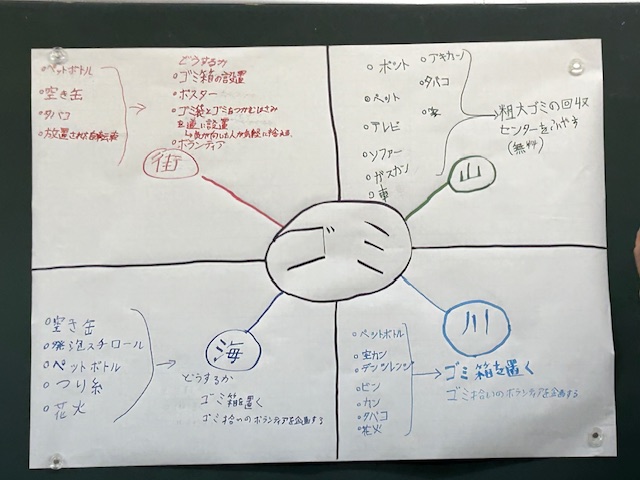 ゴミ
街
ペットボトル
空き缶
タバコ
放置された自転車
どうするか
ゴミ箱の設置
ポスター
ゴミ袋とゴミをつかむはさみ
を道に設置
→気が向いた人が気軽に拾える。
ボランティア
山
ポット
ペット
テレビ
ソファー
ガスカン
車
アキカーン
タバコ
粗大ゴミの回収
センターをふやす
(無料)
海
空き缶
発泡スチロール
ペットボトル
つり糸
花火
どうするか
ゴミ箱を置く
ゴミ拾いのボランティアを企画する
川
ペットボトル
空カン
デンシレンジ
ビン
カン
タバコ
花火
ゴミ箱を置く
ゴミ拾いのボランティアを企画する